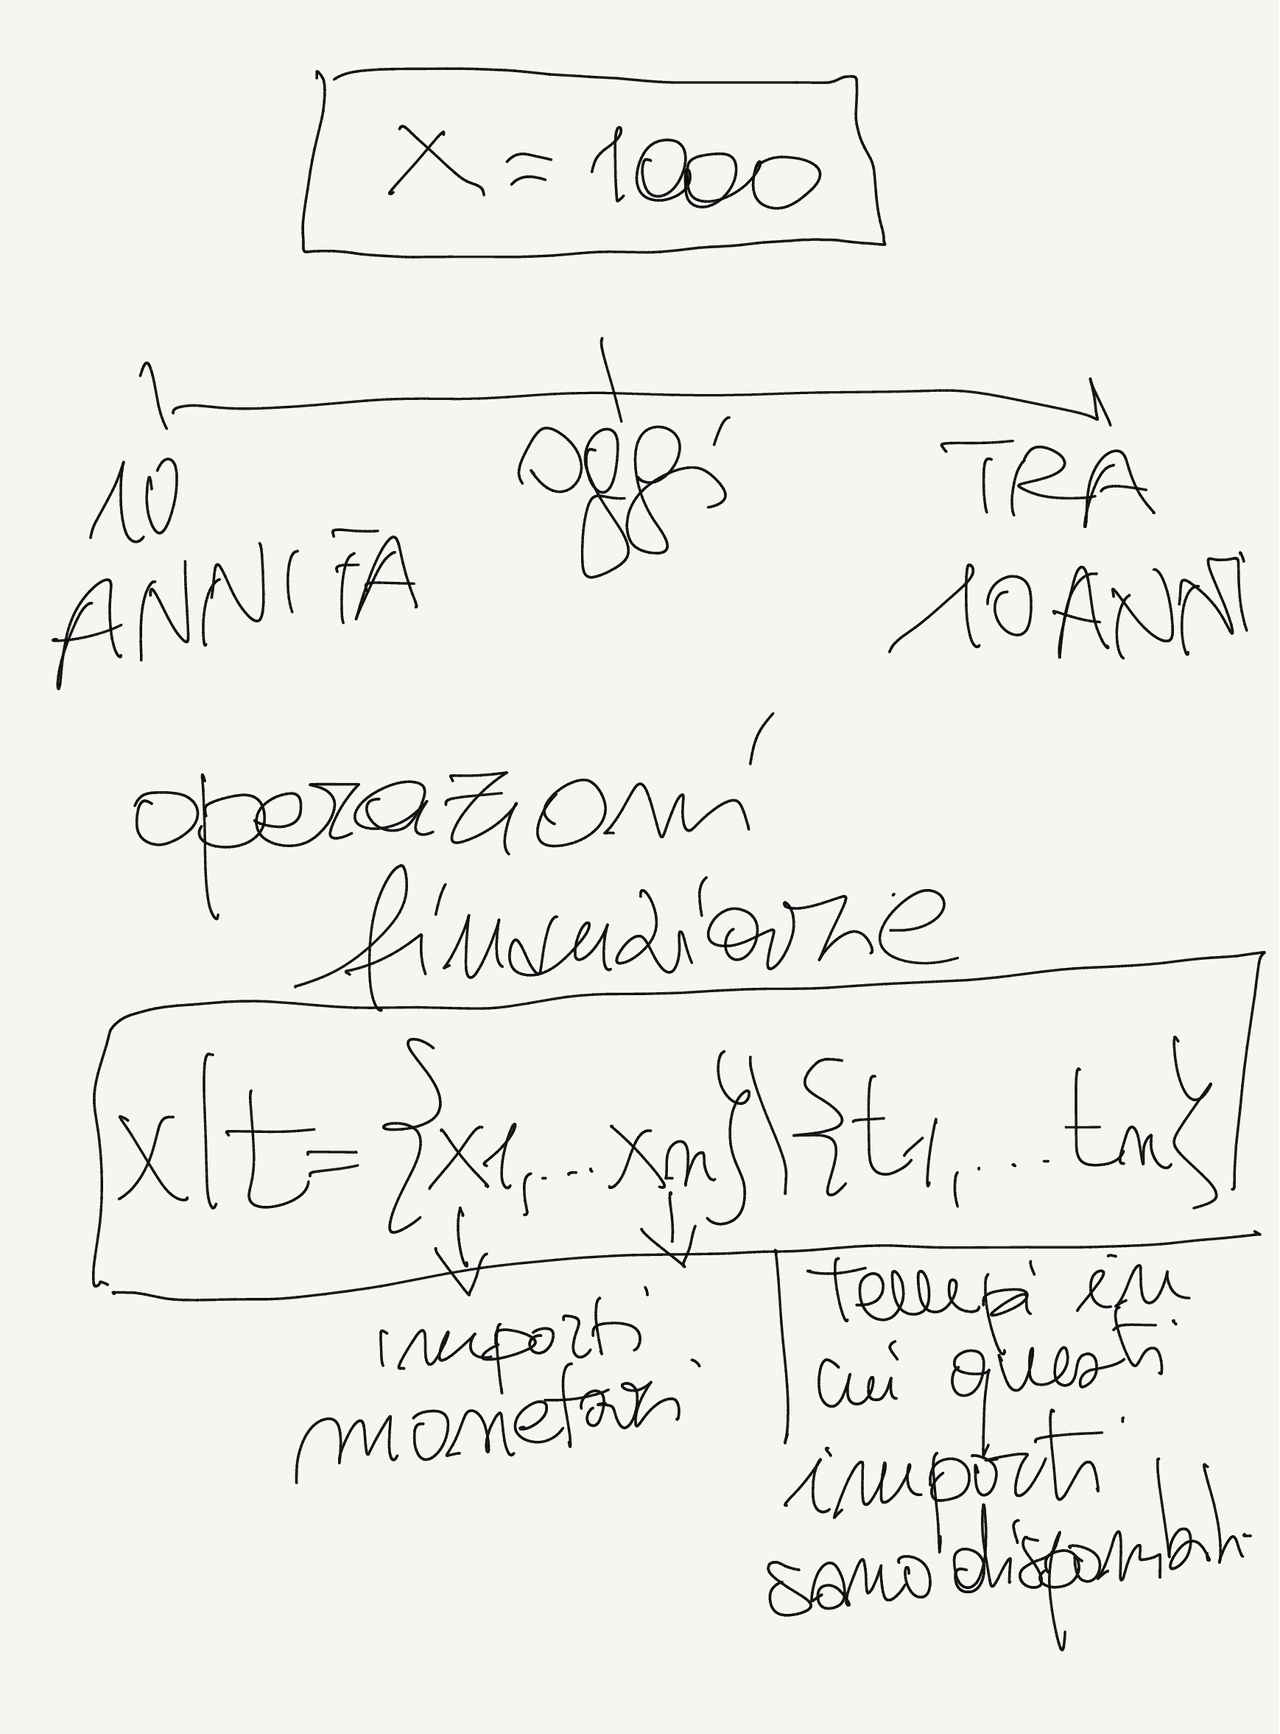 x = 1000
oggi
10
ANNI FA
TRA
10 ANNI
operazioni
finanziarie
x|t = {x1, ... xn} | {t1, ... tn}
importi
monetari
tempi in
cui questi
importi
sono disponibili